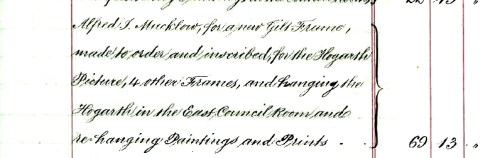 Alfred J. Mucklow, for a new Gilt Frame,
made to order and inscribed, for the Hogarth
Picture, 4 other Frames, and hanging the
Hogarth in the East Council Room and
re-hanging Paintings and Prints - . 69 13 "